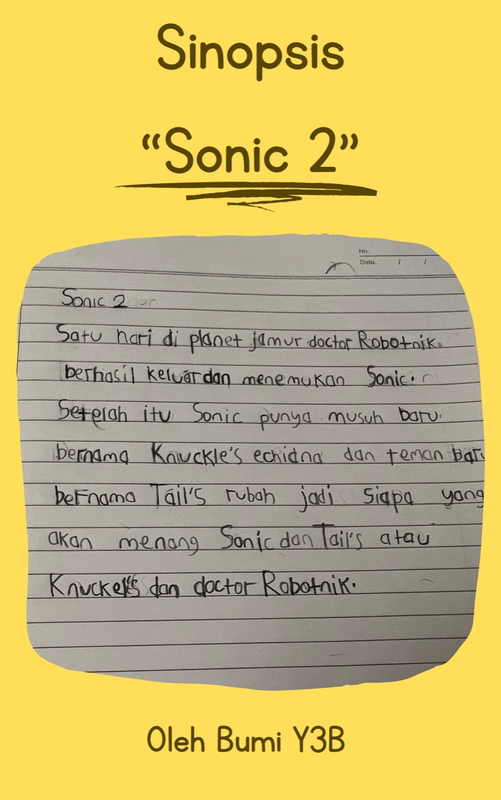 Sinopsis
“Sonic 2”
No.
Date. / /
Sonic 2
Satu hari di planet jamur doctor Robotnik.
berhasil keluar dan menemukan Sonic.
Setelah itu Sonic punya musuh baru.
bernama Knuckle's echidna dan teman baru
bernama Tail's rubah jadi siapa yang
akan menang Sonic dan Tail's atau
Knuckel's dan doctor Robotnik.
Oleh Bumi Y3B